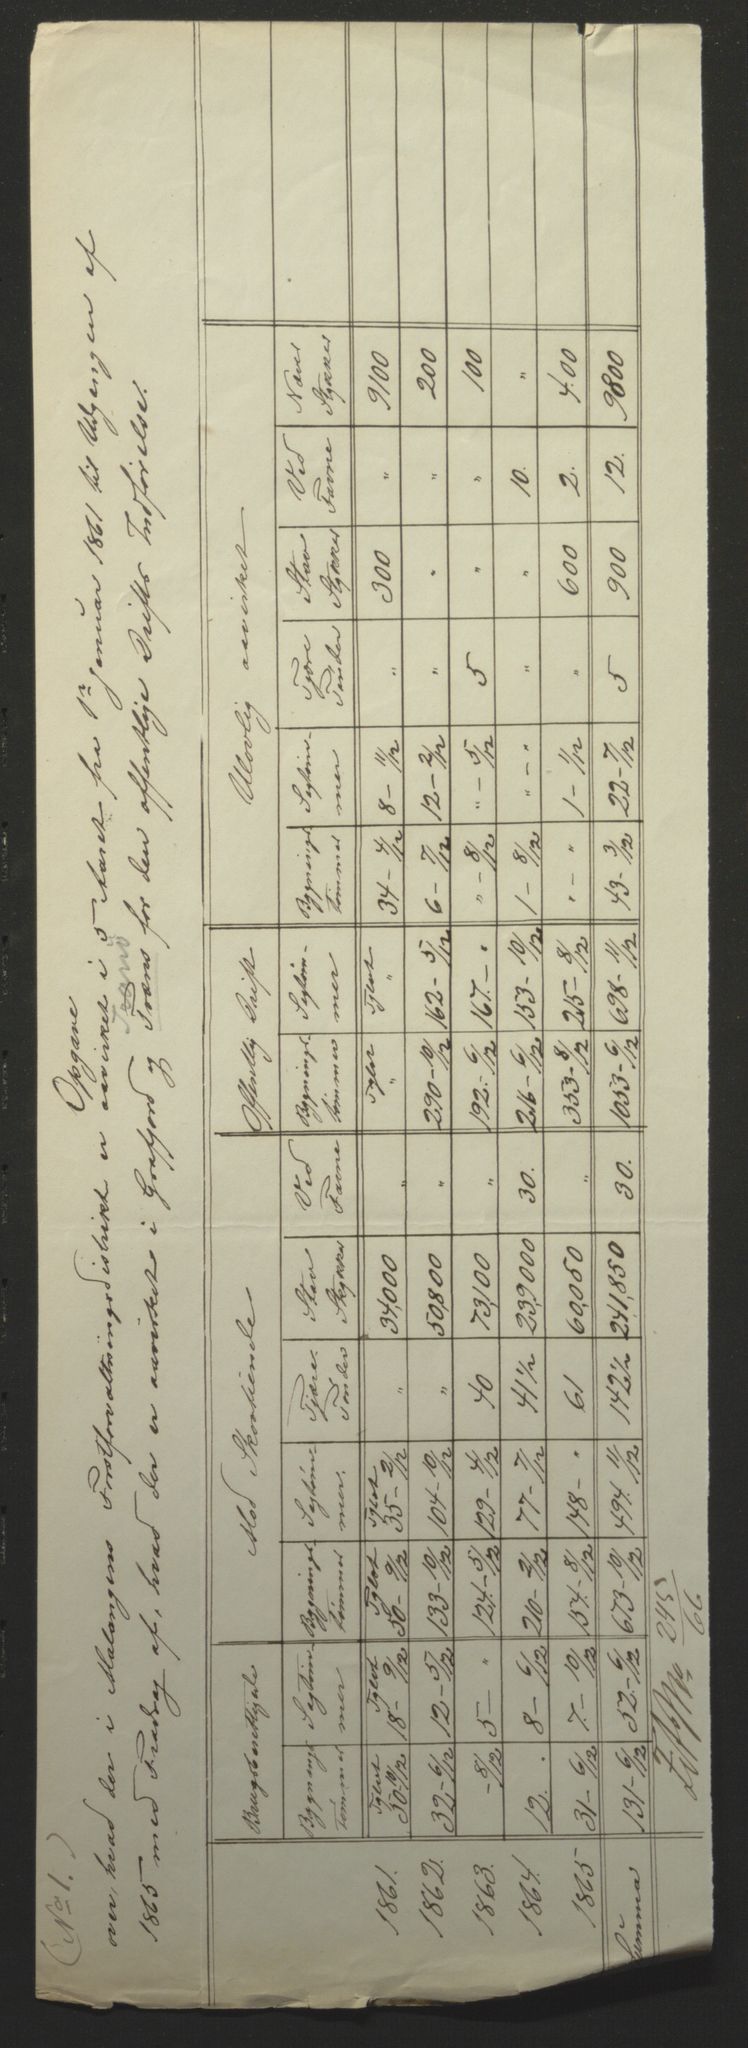 (No 1.)
Opgave
over, hvad der i Malangens Forstforvaltningsdistrikt er avirket i 5 Aaret fra 1ste Januar 1861 til Udgangen af
1865 med Fradrag af, hvad der er avirket i Gratfjord og Tranø for den offentlige Drifts Indførelse.
Brugsberettigede | Mod Skovtiende | Offentlig Drift | Ulovlig avirket
Bygnings tømmer | Sagtømmer | Bygnings tømmer | Sagtømmer | Tjære Tønder | Stav Stykker | Ved Favne | Bygnings tømmer | Sagtømmer | Bygnings tømmer | Sagtømmer | Tjære Tønder | Stav Stykker | Ved Favne | Næver Stykker
Tylvt | Tylvt | Tylvt | Tylvt | Tylvt | Tylvt
1861. | 50-10/12 | 18-9/12 | 50-9/12 | 35-2/12 | " | 34,000 | " | " | " | 34-4/12 | 8-11/12 | " | 300 | " | 9100
1862. | 32-6/12 | 12-5/12 | 133-10/12 | 104-10/12 | " | 50,800 | " | 290-10/12 | 162-5/12 | 6-7/12 | 12-2/12 | " | " | " | 200
1863. | -8/12 | 5-" | 124-5/12 | 129-4/12 | 40 | 73,100 | " | 192-6/12 | 167-" | "-8/12 | "-5/12 | 5 | " | " | 100
1864. | 12. | 8-6/12 | 210-2/12 | 77-7/12 | 41 1/2 | 23,9000 | 30. | 216-6/12 | 153-10/12 | 1-8/12 | "-" | " | " | 10. | "
1865 | 31-6/12 | 7-10/12 | 154-8/12 | 148-" | 61 | 60,050 | " | 353-8/12 | 215-8/12 | "-" | 1-1/12 | " | 600 | 2. | 400
Summa | 131-6/12 | 52-6/12 | 673-10/12 | 494 11/12 | 142 1/2 | 241,850 | 30. | 1053-6/12 | 698-11/12 | 43-3/12 | 22-7/12 | 5 | 900 | 12. | 9800
245/66